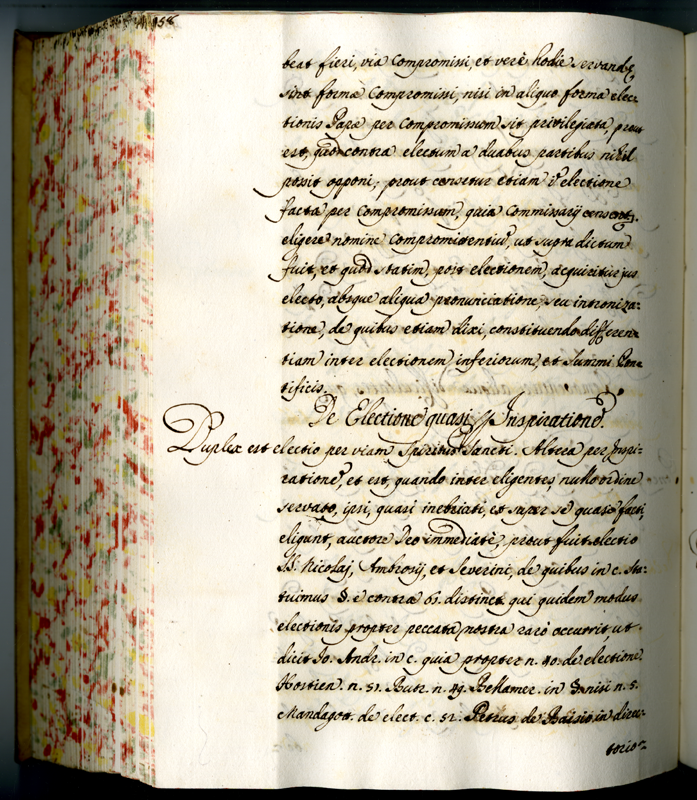 158
beat fieri, via Compromissi, et verè hodie servandę
sint forma Compromissi, nisi in aliquo forma elec-
tionis Papæ per Compromissum sit privilegiata, prout
est, quod contra electum a duabus partibus nihil
possit opponi, prout censetur etiam i electione
facta per Compromissum, quia Commissarij
eligere nomine Compromittentiũ, ut supra dictum
fuit, et quod statim, post electionem, acquiritur jus
electo, absque aliqua pronunciatione, seu introniza:
tione, de quibus etiam dixi, constituendo differen-
tiam inter electionem inferiorum, et Summi Pon-
tificis.
De Electione quasi p Inspirationẽ.
Duplex est electio per viam Spiritus Sancti. Altera per Inspi-
rationẽ, et est, quando inter eligentes, nullo ordine
servato, ipsi, quasi inebriati, et super se quasi facti,
eligunt, auctore Deo immediatè, prout fuit electio
SS. Nicolaj, Ambrosij, et Severini, de quibus in c. Sta-
tuimus §. è contra 61. distinct. qui quidem modus
electionis propter peccata nostra raro occurrit, ut
dicit Jo. Andr. in c. quia propter n. 40. de electione.
Hostien. n. 51. Butr. n. 49. Bellamer. in §. nisi n. 5.
Mandagott. de elect. c. 51. Petrus de Baisio in direc-
torio